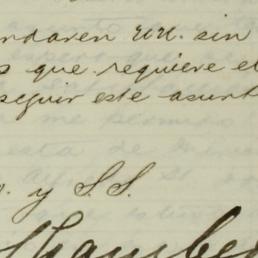 ndaren UU. sin
s que requiere el
seguir este asunt
y S.S.
Chambe